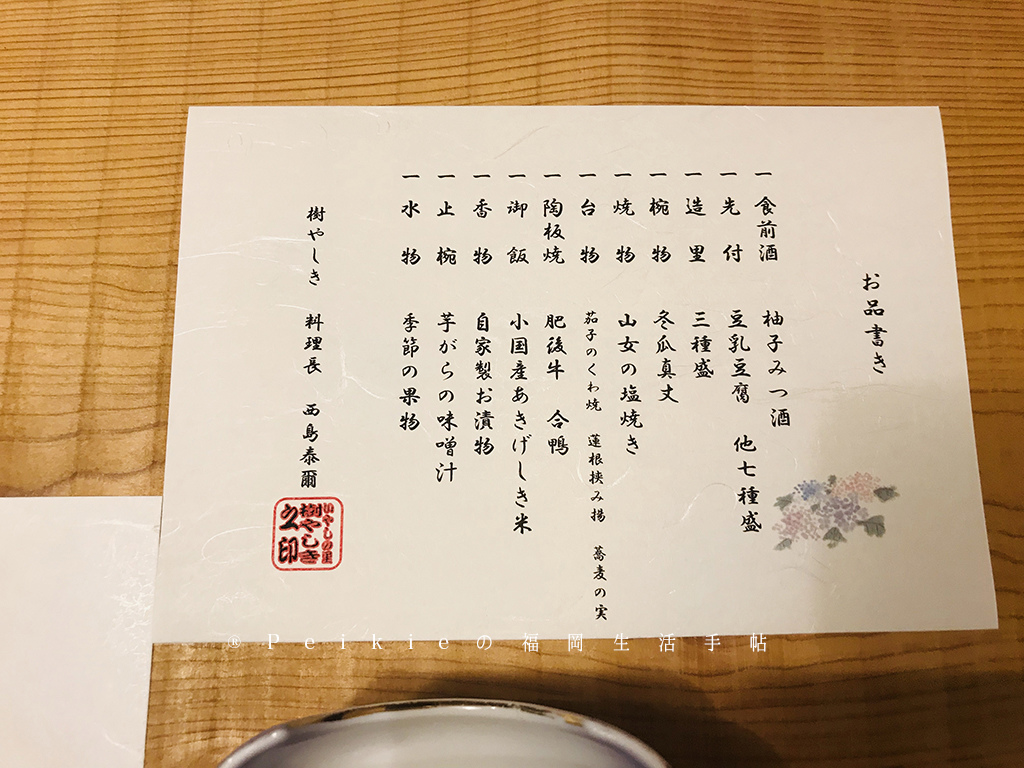 お品書き
一 食前酒 柚子みつ酒
一 先付 豆乳豆腐 他七種盛
一 造里 三種盛
一 椀物 冬瓜真丈
一 焼物 山女の塩焼き
一 台物 茄子のくわ焼 蓮根挟み揚 蕎麦の実
一 陶板焼 肥後牛 合鴨
一 御飯 小国産あきげしき米
一 香物 自家製お漬物
一 止椀 芋がらの味噌汁
一 水物 季節の果物
樹やしき 料理長 西島泰爾
いやしの里
樹やしき
之印
®Peikieの福岡生活手帖